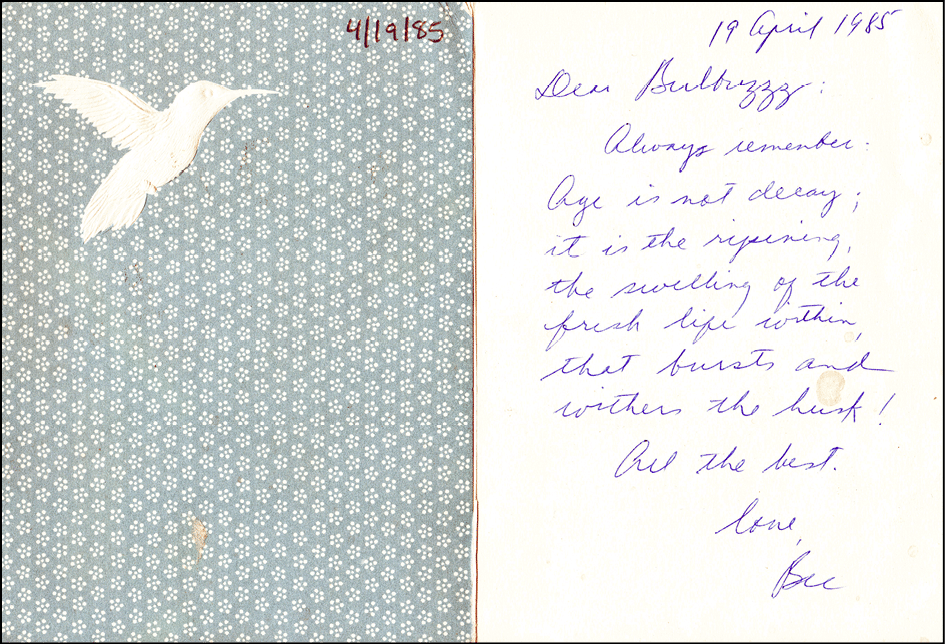 4/19/85
19 April 1985
Dear Bulbuzzz:
Always remember:
Age is not decay;
it is the ripening,
the swelling of the
fresh life within,
that bursts and
withers the husk!
All the best.
Love,
Bee